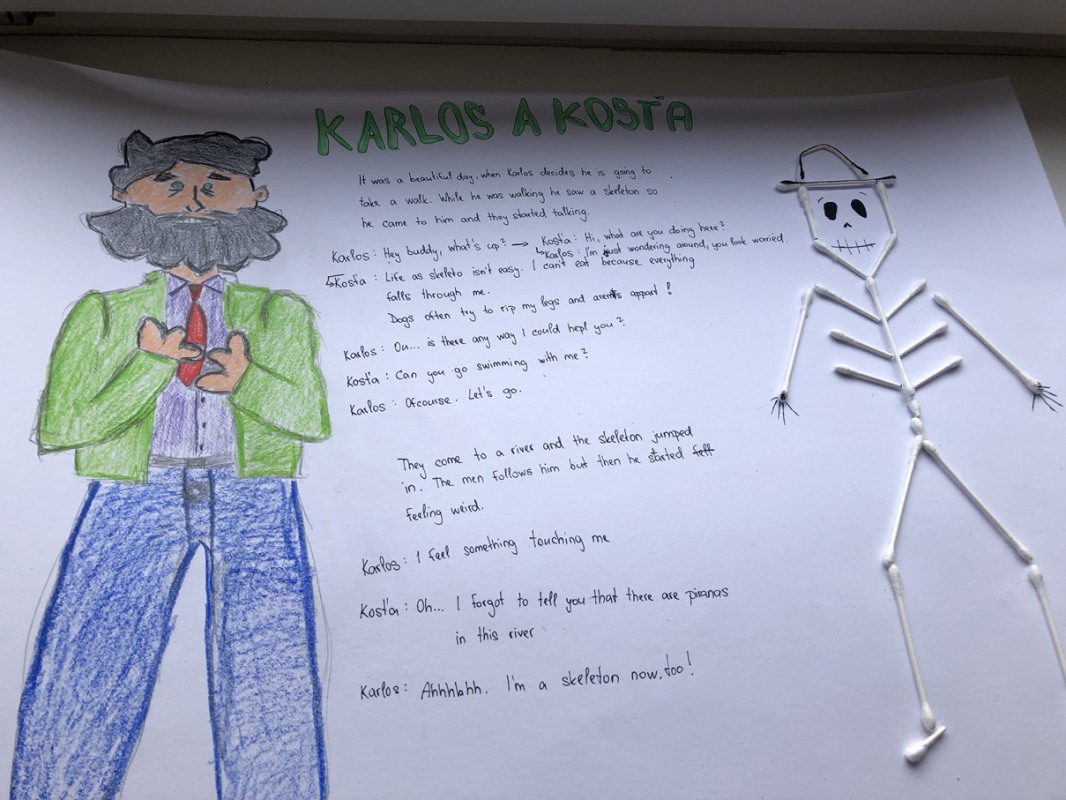 KARLOS A KOSŤA
It was a beautiful day, when Karlos decides he is going to
take a walk. While he was walking he saw a skeleton so
he came to him and they started talking.
Karlos: Hey buddy, what's up? → Kosťa: Hi, what are you doing here?
↳ Karlos: I'm just wondering around, you look worried.
↳ Kosťa: Life as skeleto isn't easy. I can't eat because everything
falls through me.
Dogs often try to rip my legs and arms appart!
Karlos: Ou... is there any way I could hepl you?
Kosťa: Can you go swimming with me?
Karlos: Ofcourse. Let's go.
They come to a river and the skeleton jumped
in. The men follows him but then he started felt
feeling weird.
Karlos: I feel something touching me
Kosťa: Oh... I forgot to tell you that there are piranas
in this river
Karlos: Ahhhhhh. I'm a skeleton now, too!